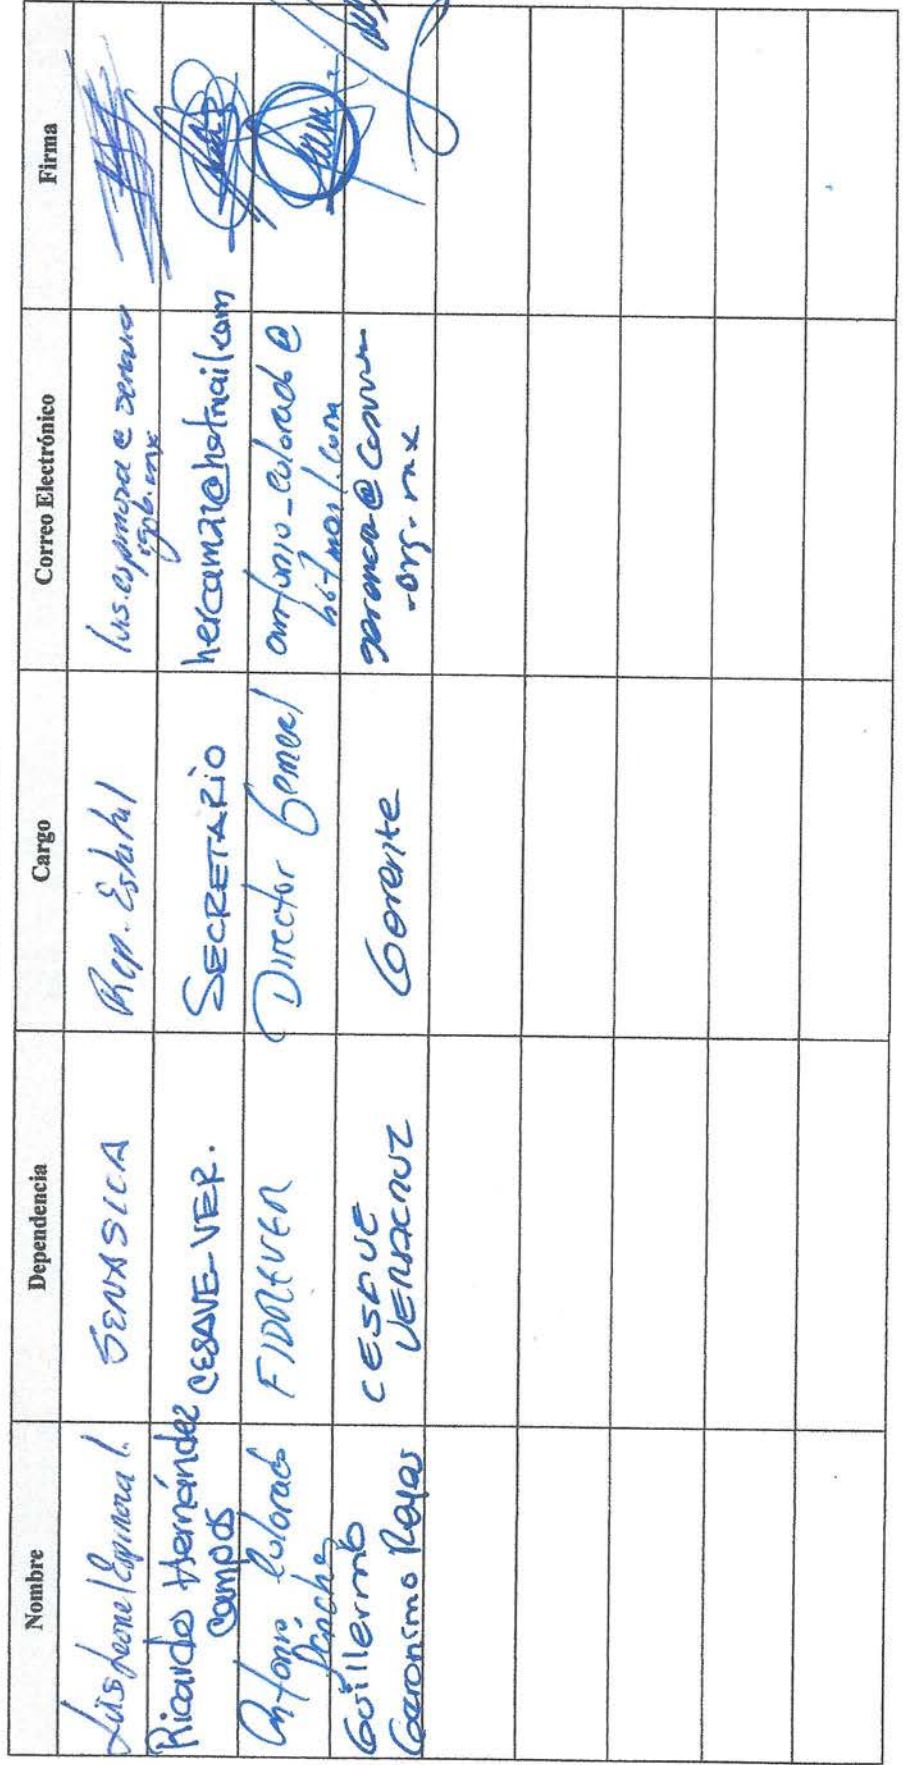 Nombre
Dependencia
Cargo
Correo Electrónico
Firma
Luis Leonel Espinosa L.
SENASICA
Rep. Estatal
luis.espinosa@senasica
.gob.mx
Ricardo Hernández
Campos
CESAVE-VER.
SECRETARIO
Antonio Colorado
FIDREVER
Director General
antonio_colorado@
hotmail.com
Guillermo
Geronimo Rojas
CESAVE
VERACRUZ
Gerente
.org.mx